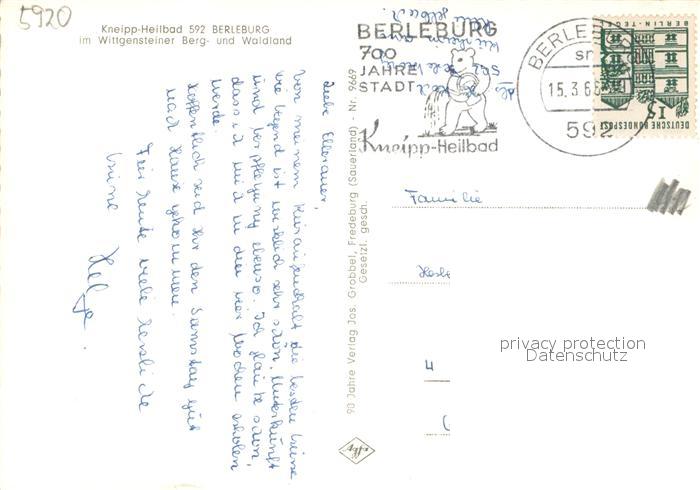 5920
Kneipp-Heilbad 592 BERLEBURG
im Wittgensteiner Berg- und Waldland
Liebe Ellerauer,
von meinem Kuraufenthalt die besten Grüsse
die Gegend ist wirklich sehr schön, Unterkunft
und Verpflegung ebenso. Ich glaube schon,
dass ich mich in den vier Wochen erholen
werde.
Hoffentlich seid Ihr den Samstag gut
nach Hause gekommen.
Für heute viele herzliche
Grüsse
Helga.
90 Jahre Verlag Jos. Grobbel, Fredeburg (Sauerland) - Nr. 9669
Gesetzl. gesch.
BERLEBURG
700
JAHRE
STADT
Kneipp-Heilbad
BERLEBURG
15.3.6
592
BERLIN-TEGEL
15
DEUTSCHE BUNDESPOST
592
Familie
4
privacy protection
Datenschutz